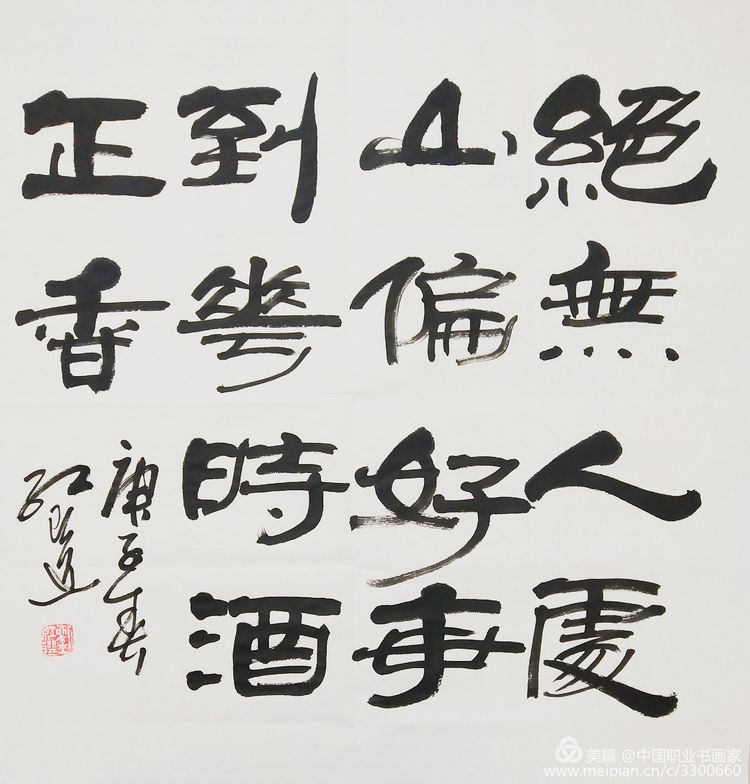 絕無人處
山偏好每
到花時酒
正香
庚子春
红
美篇 @中国职业书画家
www.meipian.cn/c/3300660